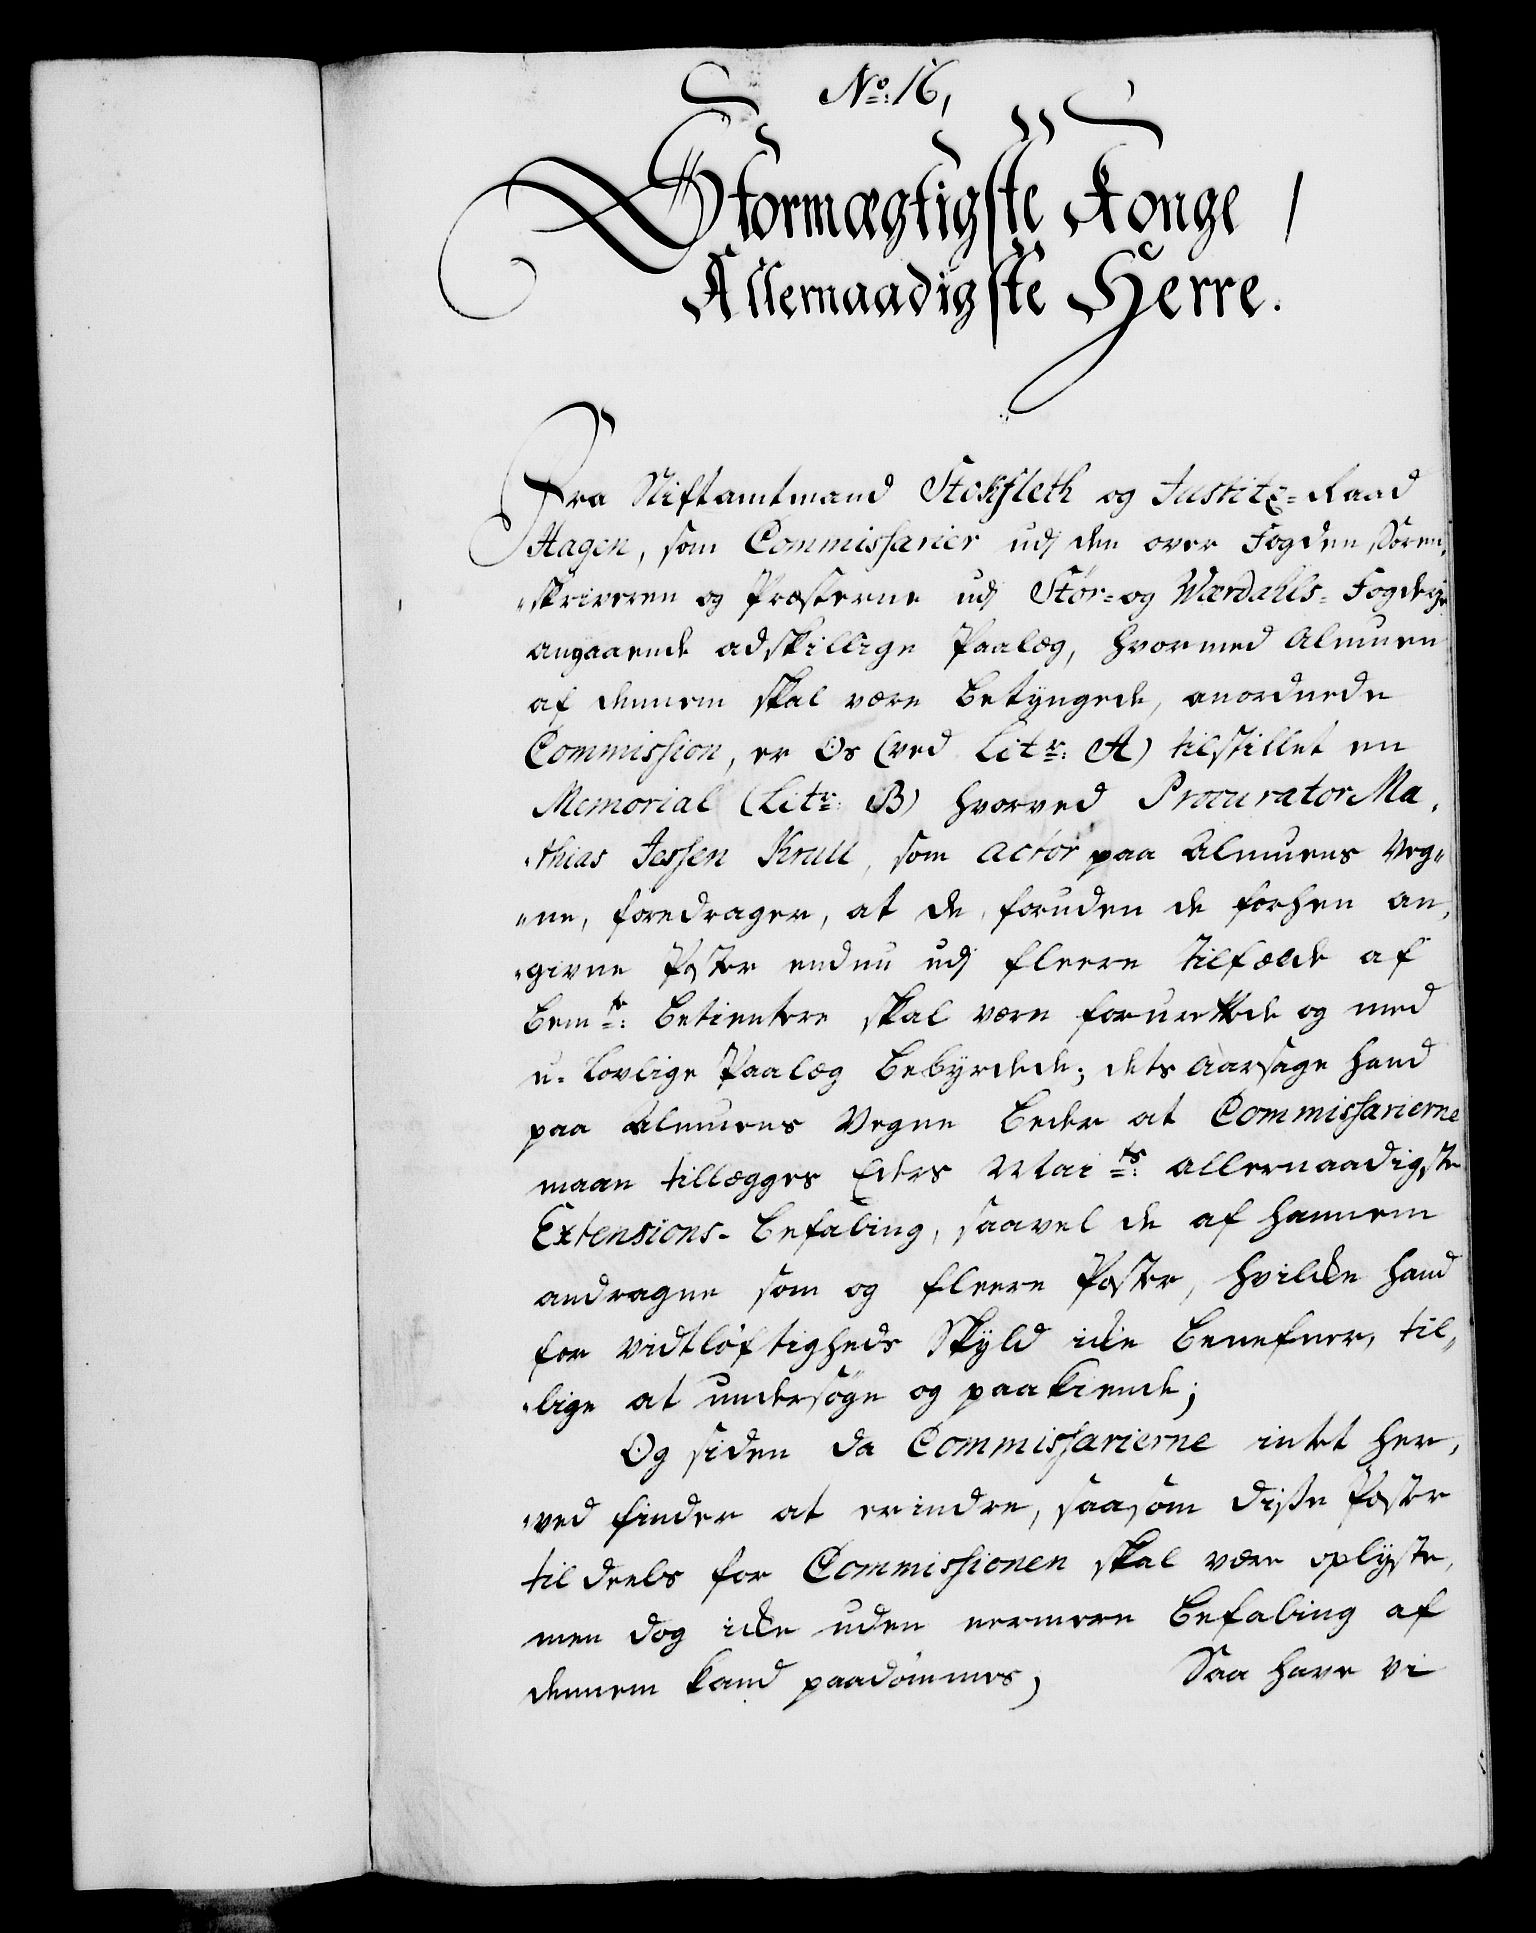 No: 16,
Stormægtigste Konge /
Allernaadigste Herre.
Fra Stiftamtmand Stockfleth og Justitz=Raad
Hagen, som Commissarier udj den over Fogden, Soren,
„skriveren og Præsterne udj Stør= og Wærdahls= Fogderje
angaaende adskillige Paalæg, hvormed Almuen
af dennem skal være betyngede, anordnede
Commission, er Os (ved Litr: A) tilstillet en
Memorial (Litr: B) hvorved Procurator Ma,
„thias Jessen Krull, som actor paa Almuens Veg„
„ne, foredrager, at de, foruden de forhen an,
„givne Poster endnu udj fleere tilfælde af
bemte: betientere skal være forurettede og med
u-lovlige Paalæg bebyrdede; dets aarsage hand
paa Almuens Vegne beder at Commissarierne
maae tillægges Eders Maits: allernaadigste
Extensions- befaling, saavel de af hannem
andragne som og fleere Poster, hvilcke hand
for vidtløftigheds Skyld icke benefner, til„
„lige at undersøge og paakiende;
Og siden da Commissarierne intet her,
„ved finder at erindre, saasom disse Poster
til deels for Commissionen skal være oplyste,
men dog icke uden nermere befaling af
dennem kand paadømmes, Saa have vi